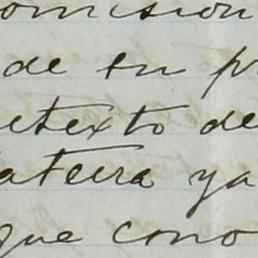 omision
de su pr
retexto de
ateira ya
que cono